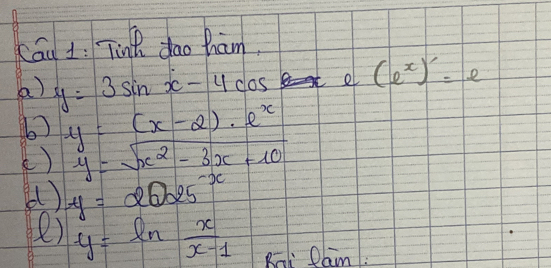 Câu 1: Tính đạo hàm.
a) y = 3 sin x - 4 cos e (eˣ)' = e
b) y = (x - 2) . eˣ
c) y = √(x² - 3x + 10)
d) y = 2025⁻ˣ
e) y = ln x/(x-1)
Bài làm: